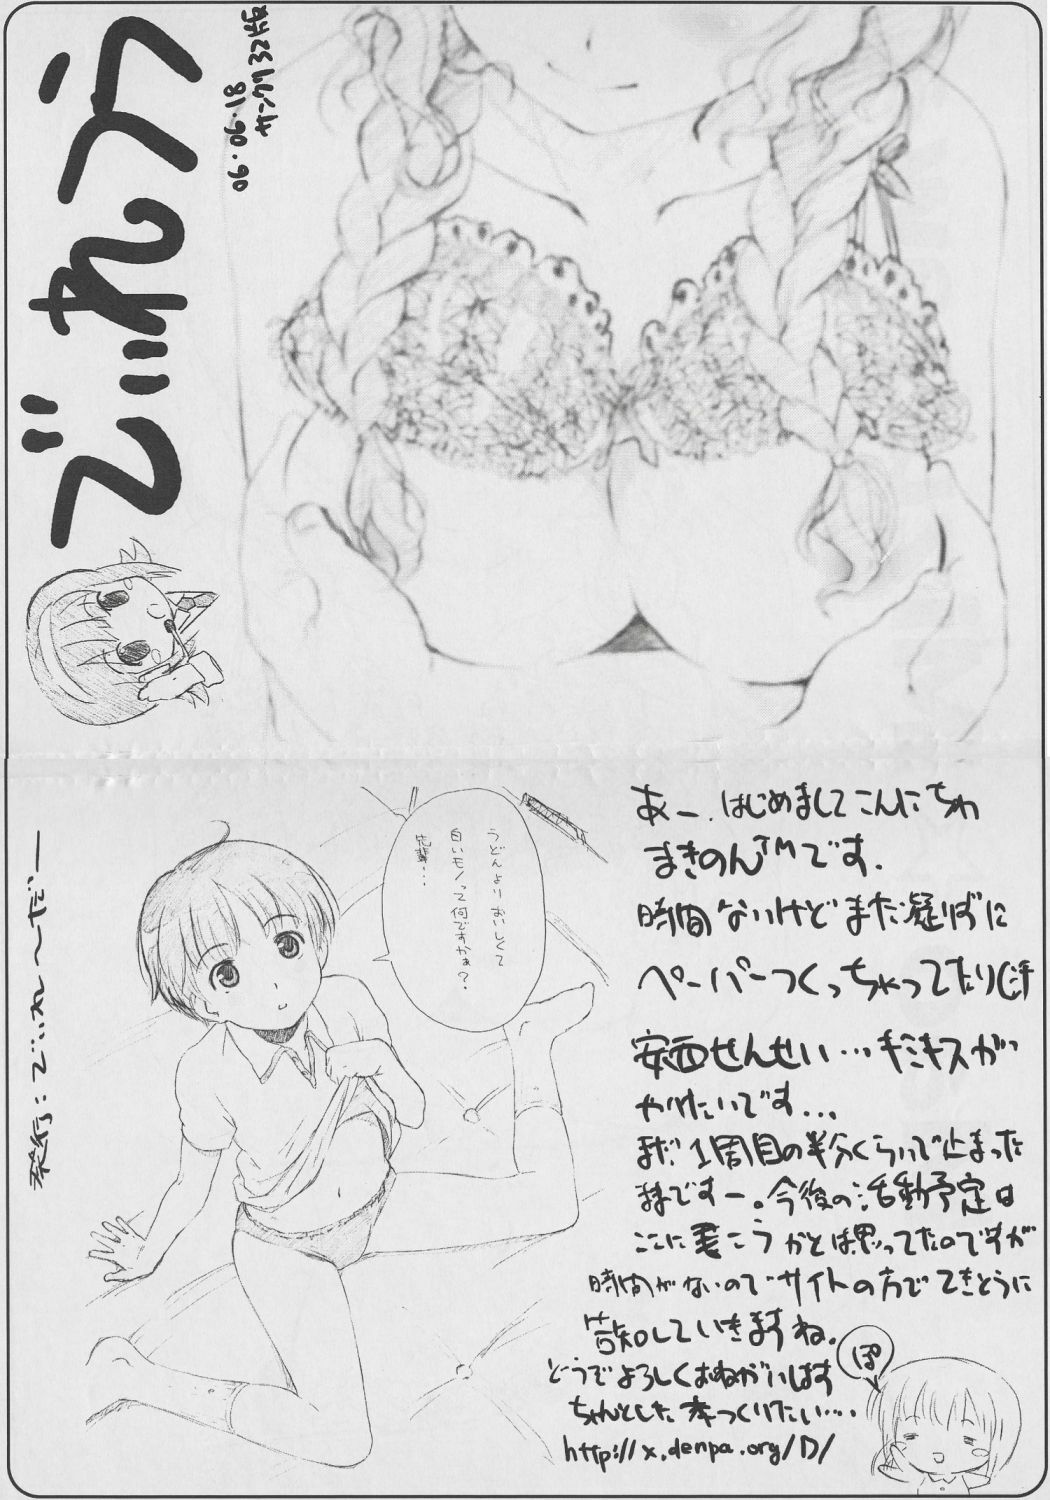 でいれう
06.06.18
サンクリ32版
うどんより おいしくて
白いモノって何ですかぁ?
先輩・・・
発行:でいれ〜だー
あー、はじめましてこんにちわ
まきのん™です.
時間ないけどまた凝りずに
ペーパーつくっちゃってたり汗
安西せんせい…キミキスが
やりたいです...
まだ1周目の半分くらいで止まった
ままですー。今後の活動予定は
ここに書こうかとは思ってたのですが
時間がないのでサイトの方でてきとうに
告知していきますね.
どうぞよろしくおねがいします
ちゃんとした本つくりたい・・・.
http://x.denpa.org/D/
ぽ